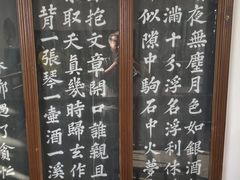 夜無塵月色如銀酒
滿十分浮名浮利休
似隙中駒石中火夢
抱文章開口誰親且
取天真幾時歸去作
背一張琴一壺酒一溪
過了貪忙